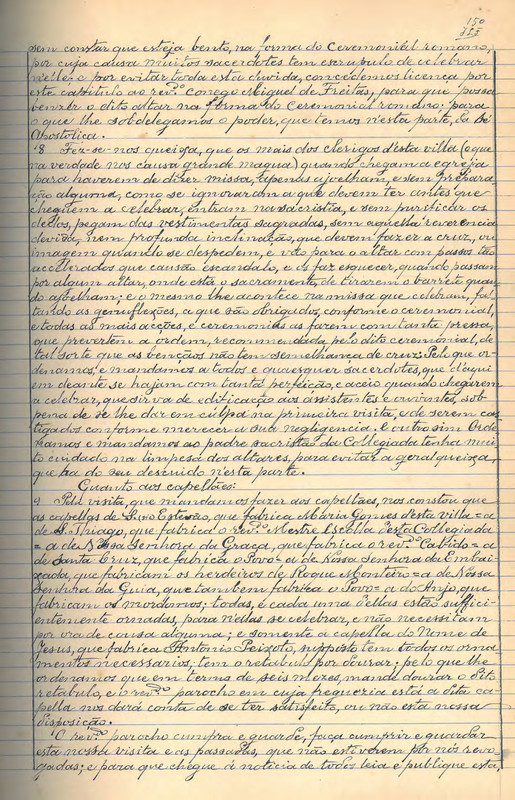 150
sem constar que esteja bento, na forma do Ceremonial romano,
por cuja causa muitos sacerdotes tem escrupulo de celebrar
nelle: e por evitar toda esta duvida, concedemos licença por
este capitulo ao rev.do Conego Miguel de Freitas, para que possa
benzer o dito altar na forma do Ceremonial romano: para
o que lhe sobdelegamos o poder, que temos n'esta parte, da Sé
Apostolica.
8 Fez-se-nos queixa, que os mais dos clerigos d'esta villa (o que
na verdade nos causa grande magua) quando chegam a egreja
para haverem de dizer missa, apenas ajoelham, e sem prepara-
ração alguma, como se ignoraram a que devem ter antes que
cheguem a celebrar, entram na sacristia, e sem purificar os
dedos, pegam das vestimentas sagradas, sem aquella reverencia
devida, nem profunda inclinação, que devem fazer a cruz, ou
imagem quando se despedem, e vão para o altar com passos tão
accelerados que causão escandalo, e os faz esquecer, quando passam
por algum altar, onde está o sacramento, de tirarem o barrete quan-
do ajoelham; e o mesmo lhe acontece na missa que celebram, fal-
tando as genuflexões, a que são obrigados, conforme o ceremonial,
e todas as mais acções, e ceremonias as fazem com tanta pressa,
que prevertem a ordem, recommendada pelo dito ceremonial, de
tal sorte que as bençãos não tem semelhança de cruz: Pelo que or-
denamos, e mandamos a todos e quaesquer sacerdotes, que d'aqui
em deante se hajam com tanta perfeição, e aceio quando chegarem
a celebrar, que sirva de edificação aos assistentes e ouvintes, sob
pena de se lhe dar em culpa na primeira visita, e de serem cas-
tigados conforme merecer a sua negligencia. E outro sim Orde
namos e mandamos ao padre sacristão da Collegiada tenha mui-
to cuidado na limpesa dos altares, para evitar a geral queixa,
que ha do seu descuido n'esta parte.
Quanto aos capellães:
9 Pela visita, que mandamos fazer aos capellães, nos constou que
as capellas de S.to Estevão, que fabrica Maria Gomes d'esta villa = a
de S. Thiago, que fabrica o rev.do Mestre Escolla d'esta Collegiada
= a de Nossa Senhora da Graça, que fabrica o rev.do Cabido = a
de Santa Cruz, que fabrica o Povo = a de Nossa Senhora da Embai-
xada, que fabricam os herdeiros de Roque Monteiro = a de Nossa
Senhora da Guia, que tambem fabrica o Povo = a do Anjo, que
fabricam os mordomos; todas, e cada uma d'ellas estão suffici-
entemente ornadas, para n'ellas se celebrar, e não necessitam
por ora de cousa alguma; e somente a capella do Nome de
Jesus, que fabrica Antonio Peixoto, supposto tem todos os orna-
mentos necessarios, tem o retabulo por dourar: pelo que lhe
ordenamos que em termo de seis mezes, mande dourar o dito
retabulo, e o rev.do parocho em cuja freguezia está a dita ca-
pella nos dará conta de se ter satisfeito, ou não esta nossa
disposição.
O rev.do parocho cumpra e guarde, faça cumprir e guardar
esta nossa visita e as passadas, que não estiverem por nós revo-
gadas; e para que chegue á noticia de todos leia e publique esta,